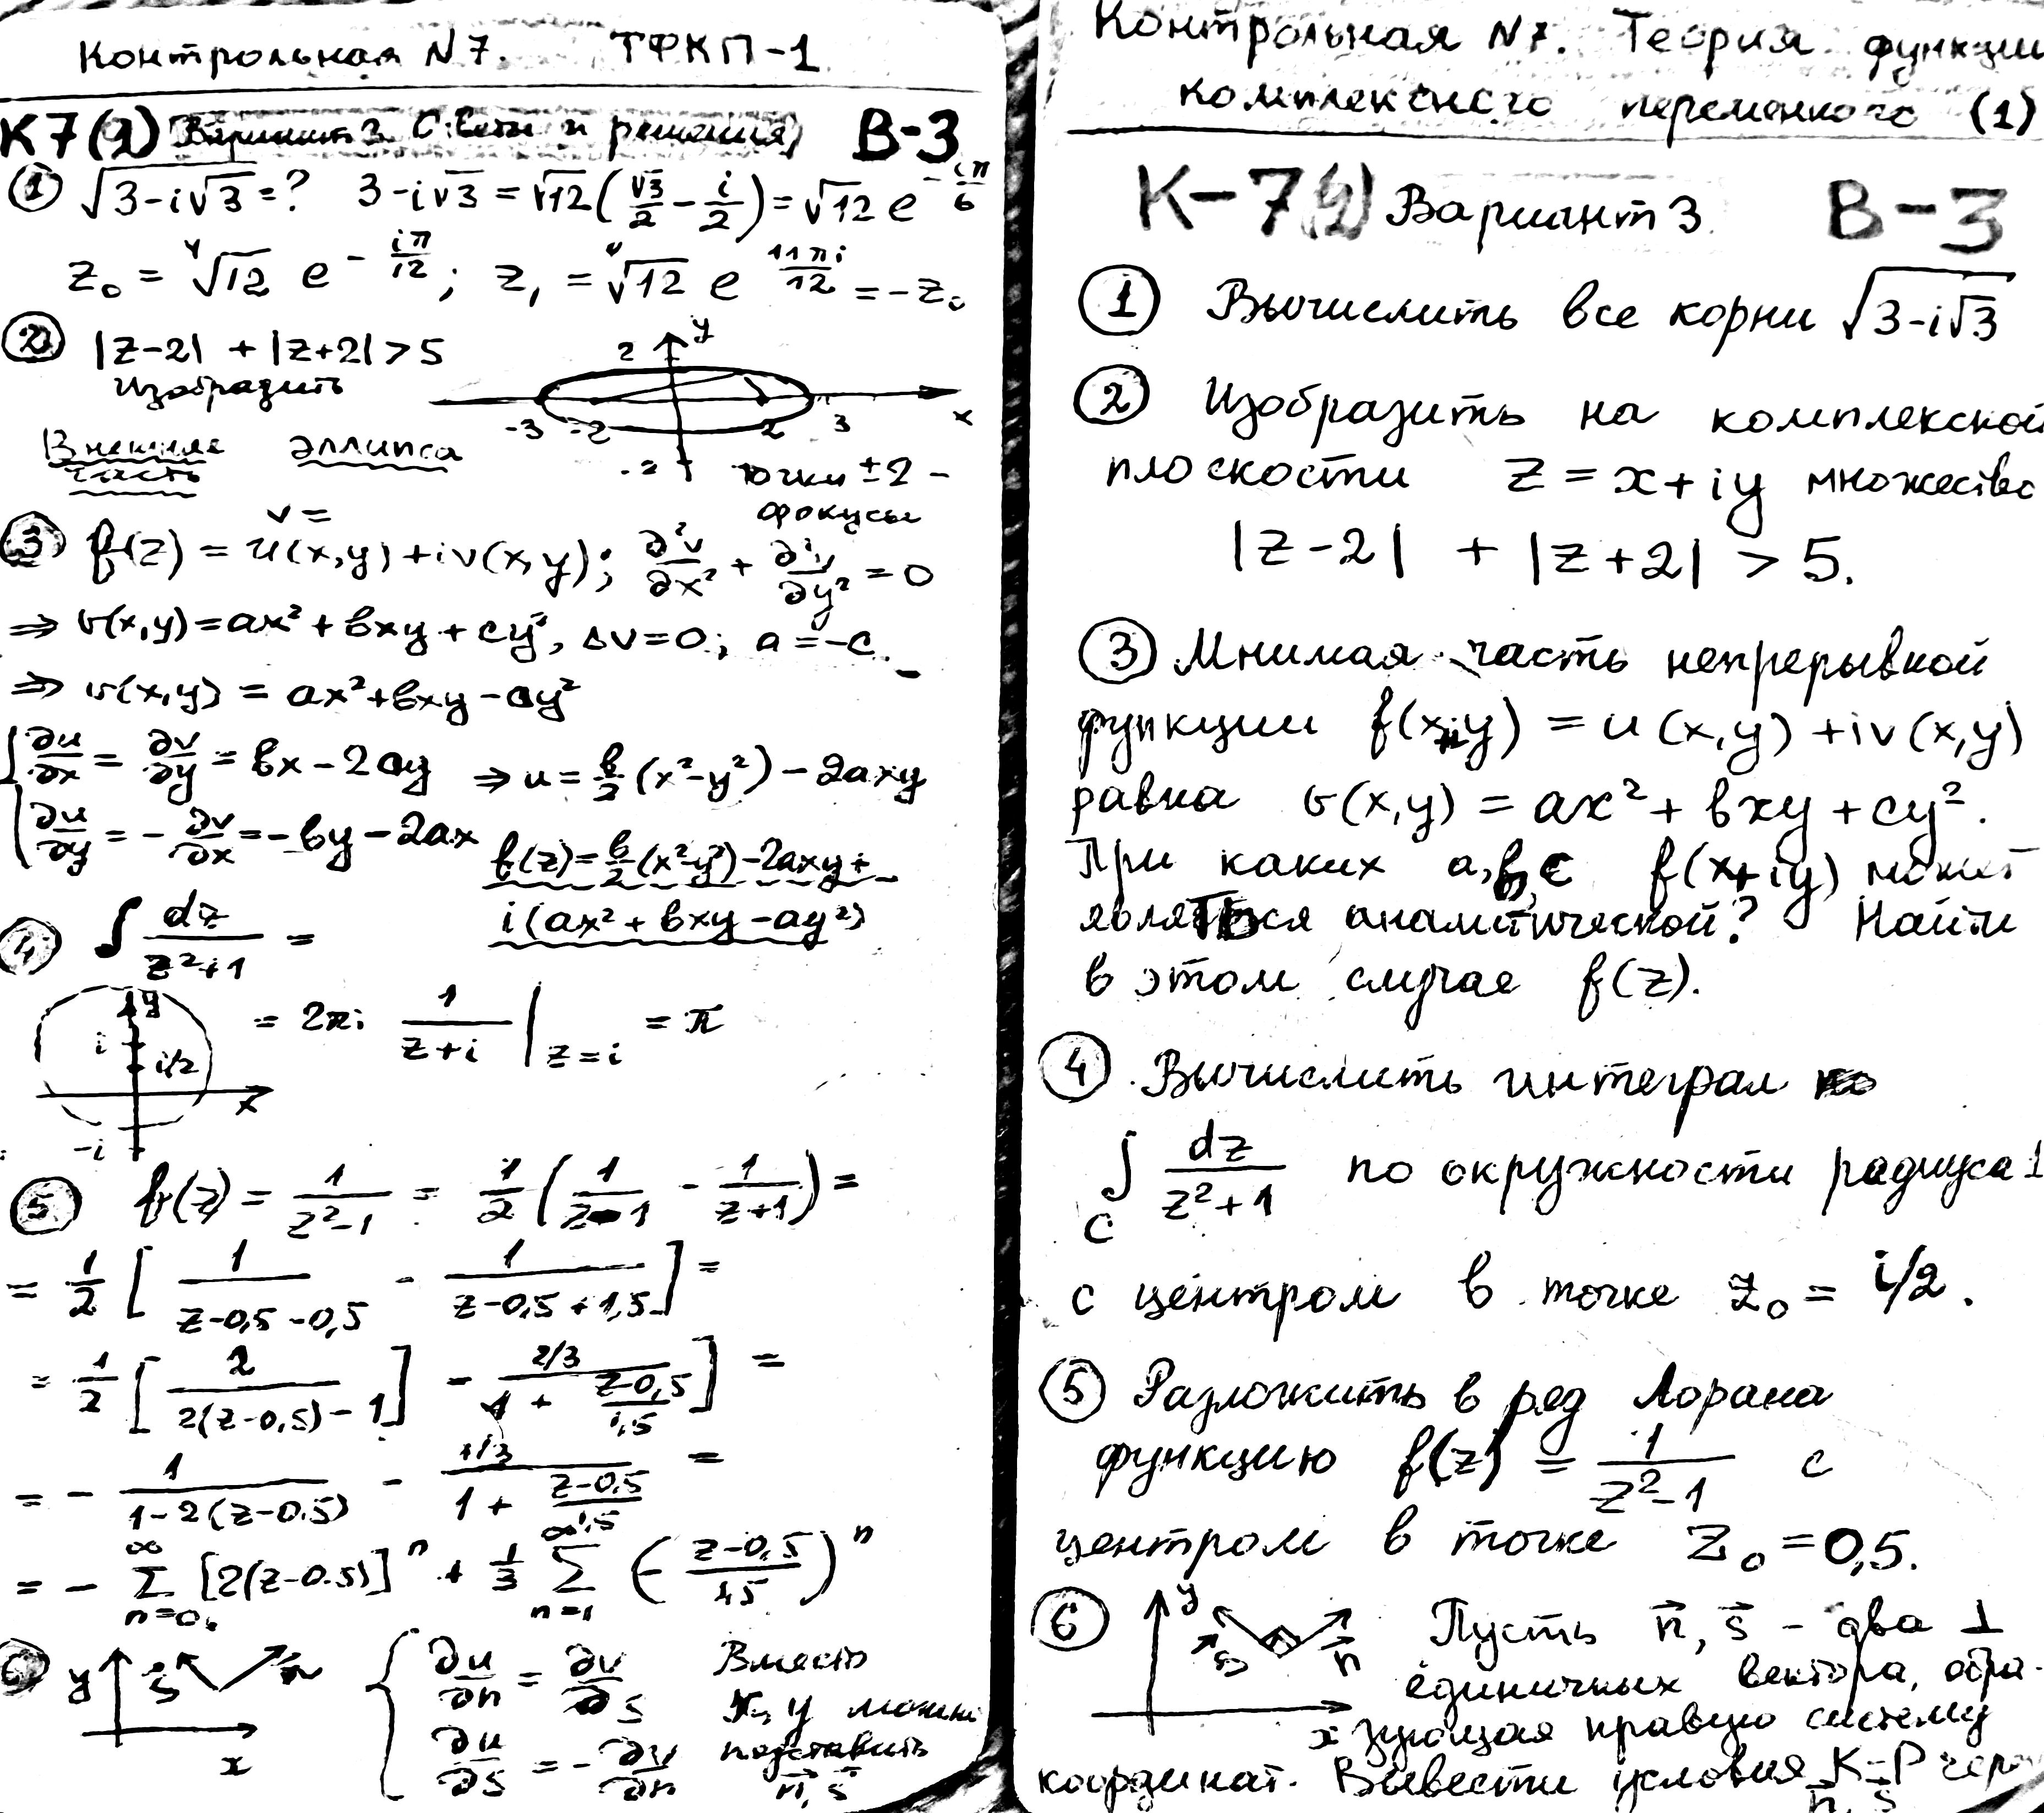 Контрольная N7. ТФКП-1
К7(1) Вариант 3 Ответы и решения В-3
① √(3-i√3) = ? 3-i√3 = √12(√3/2 - i/2) = √12 e^(-iπ/6)
z₀ = ⁴√12 e^(-iπ/12); z₁ = ⁴√12 e^(11πi/12) = -z₀
② |z-2| + |z+2| > 5
Изобразить
y
2
-3 -2 2 3 x
Внешняя эллипса
часть
-2 точки ±2 -
фокусы
v =
③ f(z) = u(x,y) + iv(x,y); ∂²v/∂x² + ∂²v/∂y² = 0
⇒ v(x,y) = ax² + bxy + cy², Δv = 0; a = -c
⇒ v(x,y) = ax² + bxy - ay²
{ ∂u/∂x = ∂v/∂y = bx - 2ay ⇒ u = b/2 (x²-y²) - 2axy
∂u/∂y = -∂v/∂x = -by - 2ax
f(z) = b/2 (x²-y²) - 2axy +
i(ax² + bxy - ay²)
4 ∫ dz/(z²+1) =
y
i
i/2
x
-i
= 2πi 1/(z+i) |z=i = π
⑤ f(z) = 1/(z²-1) = 1/2 (1/(z-1) - 1/(z+1)) =
= 1/2 [1/(z-0,5-0,5) - 1/(z-0,5+1,5)] =
= 1/2 [2/(2(z-0,5)-1)] - (2/3)/(1 + (z-0,5)/1,5)] =
= - 1/(1-2(z-0.5)) - (1/3)/(1 + (z-0,5)/1,5) =
= - ∞Σn=0 [2(z-0.5)]ⁿ + 1/3 ∞Σn=1 (-(z-0,5)/1,5)ⁿ
6 y s n x
{ ∂u/∂n = ∂v/∂s Вместо
x, y можно
∂u/∂s = -∂v/∂n подставить
n, s
Контрольная N7. Теория функции
комплексного переменного (1)
К-7(1) Вариант 3 В-3
① Вычислить все корни √(3-i√3)
② Изобразить на комплексной
плоскости z = x+iy множество
|z-2| + |z+2| > 5.
③ Мнимая часть непрерывной
функции f(x+iy) = u(x,y) + iv(x,y)
равна v(x,y) = ax² + bxy + cy².
При каких a,b,c f(x+iy) может
являться аналитической? Найти
в этом случае f(z).
④ Вычислить интеграл
∫C dz/(z²+1) по окружности радиуса 1
с центром в точке z₀ = i/2.
⑤ Разложить в ряд Лорана
функцию f(z) = 1/(z²-1) с
центром в точке z₀ = 0,5.
⑥ y s n x
Пусть n⃗, s⃗ - два ⊥
единичных вектора, обра-
зующая правую систему
координат. Вывести условия К-Р через
n⃗, s⃗